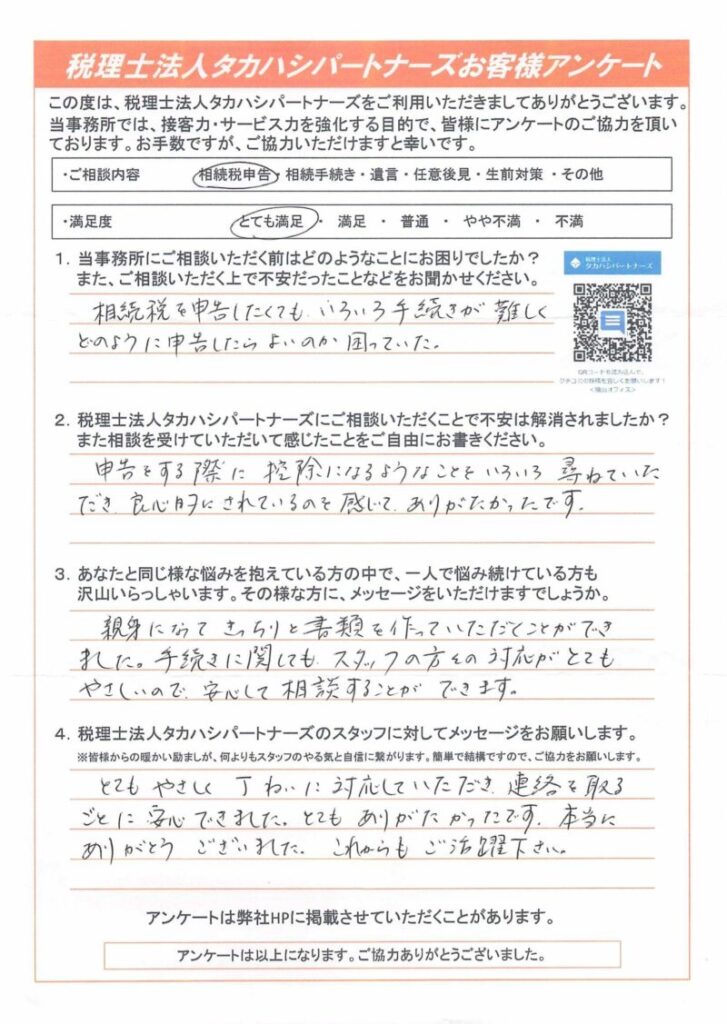 税理士法人タカハシパートナーズお客様アンケート
この度は、税理士法人タカハシパートナーズをご利用いただきましてありがとうございます。
当事務所では、接客力・サービス力を強化する目的で、皆様にアンケートのご協力を頂い
ております。お手数ですが、ご協力いただけますと幸いです。
・ご相談内容 相続税申告・相続手続き・遺言・任意後見・生前対策・その他
・満足度 とても満足 ・ 満足 ・ 普通 ・ やや不満 ・ 不満
1. 当事務所にご相談いただく前はどのようなことにお困りでしたか?
また、ご相談いただく上で不安だったことなどをお聞かせください。
税理士法人
タカハシパートナーズ
相続税を申告したくても、いろいろ手続きが難しく
どのように申告したらよいのか困っていた。
QRコードを読み込んで、
クチコミの投稿を宜しくお願いします!
2. 税理士法人タカハシパートナーズにご相談いただくことで不安は解消されましたか?
また相談を受けていただいて感じたことをご自由にお書きください。
申告をする際に控除になるようなことをいろいろ尋ねていた
だき、良心的にされているのを感じて、ありがたかったです。
3. あなたと同じ様な悩みを抱えている方の中で、一人で悩み続けている方も
沢山いらっしゃいます。その様な方に、メッセージをいただけますでしょうか。
親身になってきっちりと書類を作っていただくことができ
ました。手続きに関しても、スタッフの方々の対応がとても
やさしいので、安心して相談することができます。
4. 税理士法人タカハシパートナーズのスタッフに対してメッセージをお願いします。
※皆様からの暖かい励ましが、何よりもスタッフのやる気と自信に繋がります。簡単で結構ですので、ご協力をお願いします。
とてもやさしく丁ねいに対応していただき、連絡を取る
ごとに安心できました。とてもありがたかったです。本当に
ありがとうございました。これからもご活躍下さい。
アンケートは弊社HPに掲載させていただくことがあります。
アンケートは以上になります。ご協力ありがとうございました。